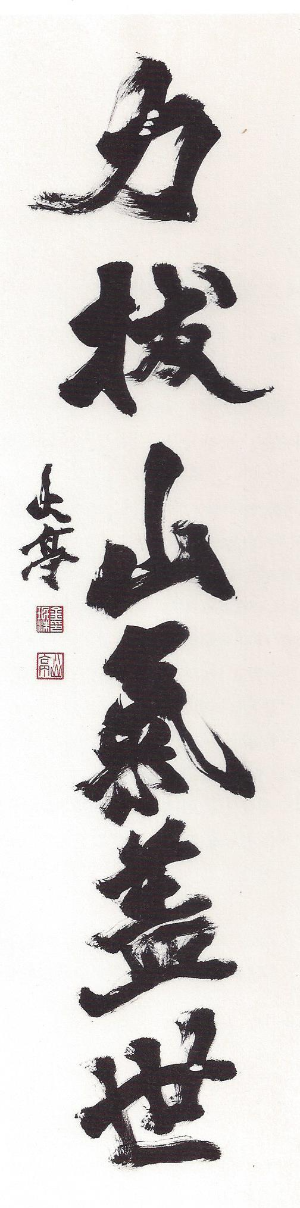 力拔山氣蓋世